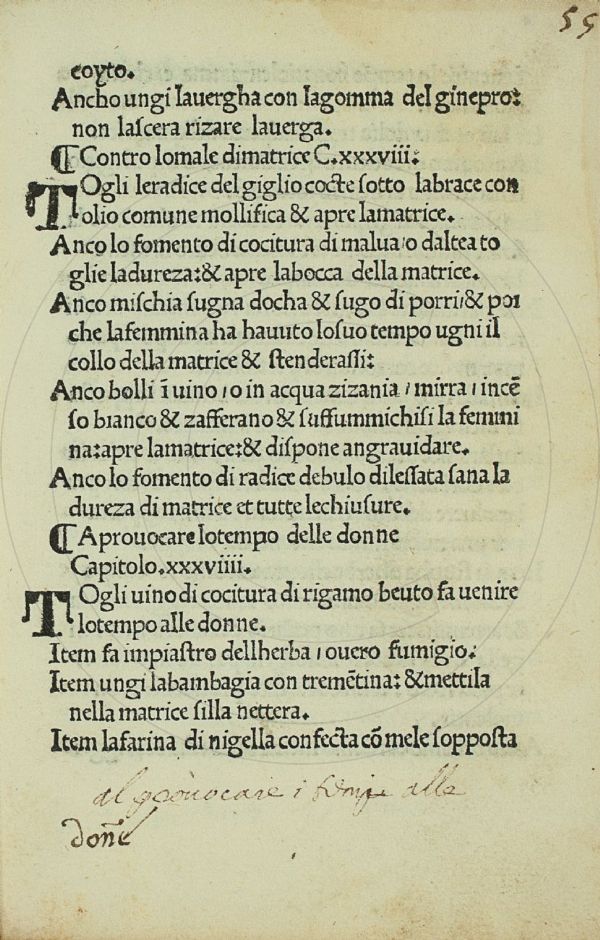 55
coyto.
Ancho ungi lauergha con lagomma del ginepro:
non laſcera rizare lauerga.
¶ Contro lomale dimatrice C.xxxviii:
TOgli leradice del giglio cocte ſotto labrace con
olio comune mollifica & apre lamatrice.
Anco lo fomento di cocitura di malua/o daltea to
glie ladureza:& apre labocca della matrice.
Anco miſchia ſugna docha & ſugo di porri/& poi
che lafemmina ha hauuto loſuo tempo ugni il
collo della matrice & ſtenderaſſi:
Anco bolli ī uino/o in acqua zizania/mirra/incē
ſo bianco & zafferano & ſuffummichiſi la femmi
na:apre lamatrice:& diſpone angrauidare.
Anco lo fomento di radice debulo dileſſata ſana la
dureza di matrice et tutte lechiuſure.
¶ Aprouocare lotempo delle donne
Capitolo.xxxviiii.
TOgli uino di cocitura di rigamo beuto fa uenire
lotempo alle donne.
Item fa impiaſtro dellherba/ouero fumigio.
Item ungi labambagia con tremētina:&mettila
nella matrice ſilla nettera.
Item lafarina di nigella confecta cō mele ſoppoſta
al prouocare i alle
doñe